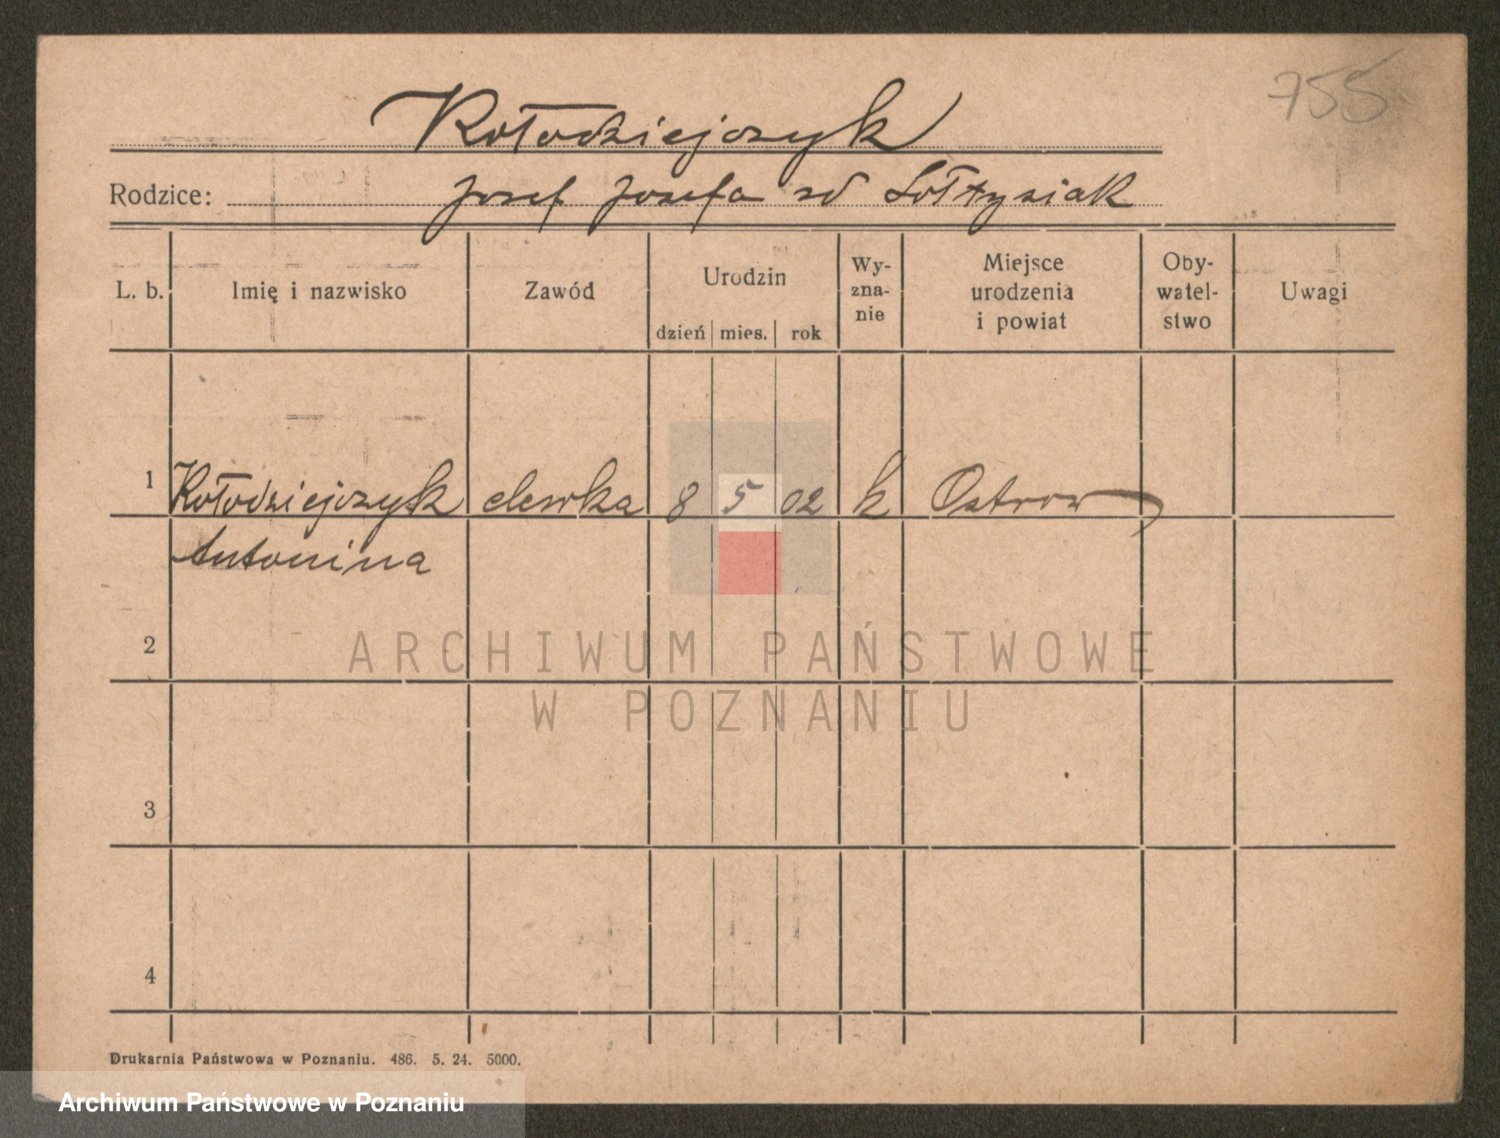 755
Kołodziejczyk
Rodzice: Josef Josefa zd Sołtysiak
L. b. Imię i nazwisko Zawód Urodzin dzień mies. rok Wy-zna-nie Miejsce urodzenia i powiat Oby-watel-stwo Uwagi
1 Kołodziejczyk elewka 8 5 02 k Ostrow
Antonina
2
ARCHIWUM PAŃSTWOWE
W POZNANIU
3
4
Drukarnia Państwowa w Poznaniu. 486. 5. 24. 5000.
Archiwum Państwowe w Poznaniu